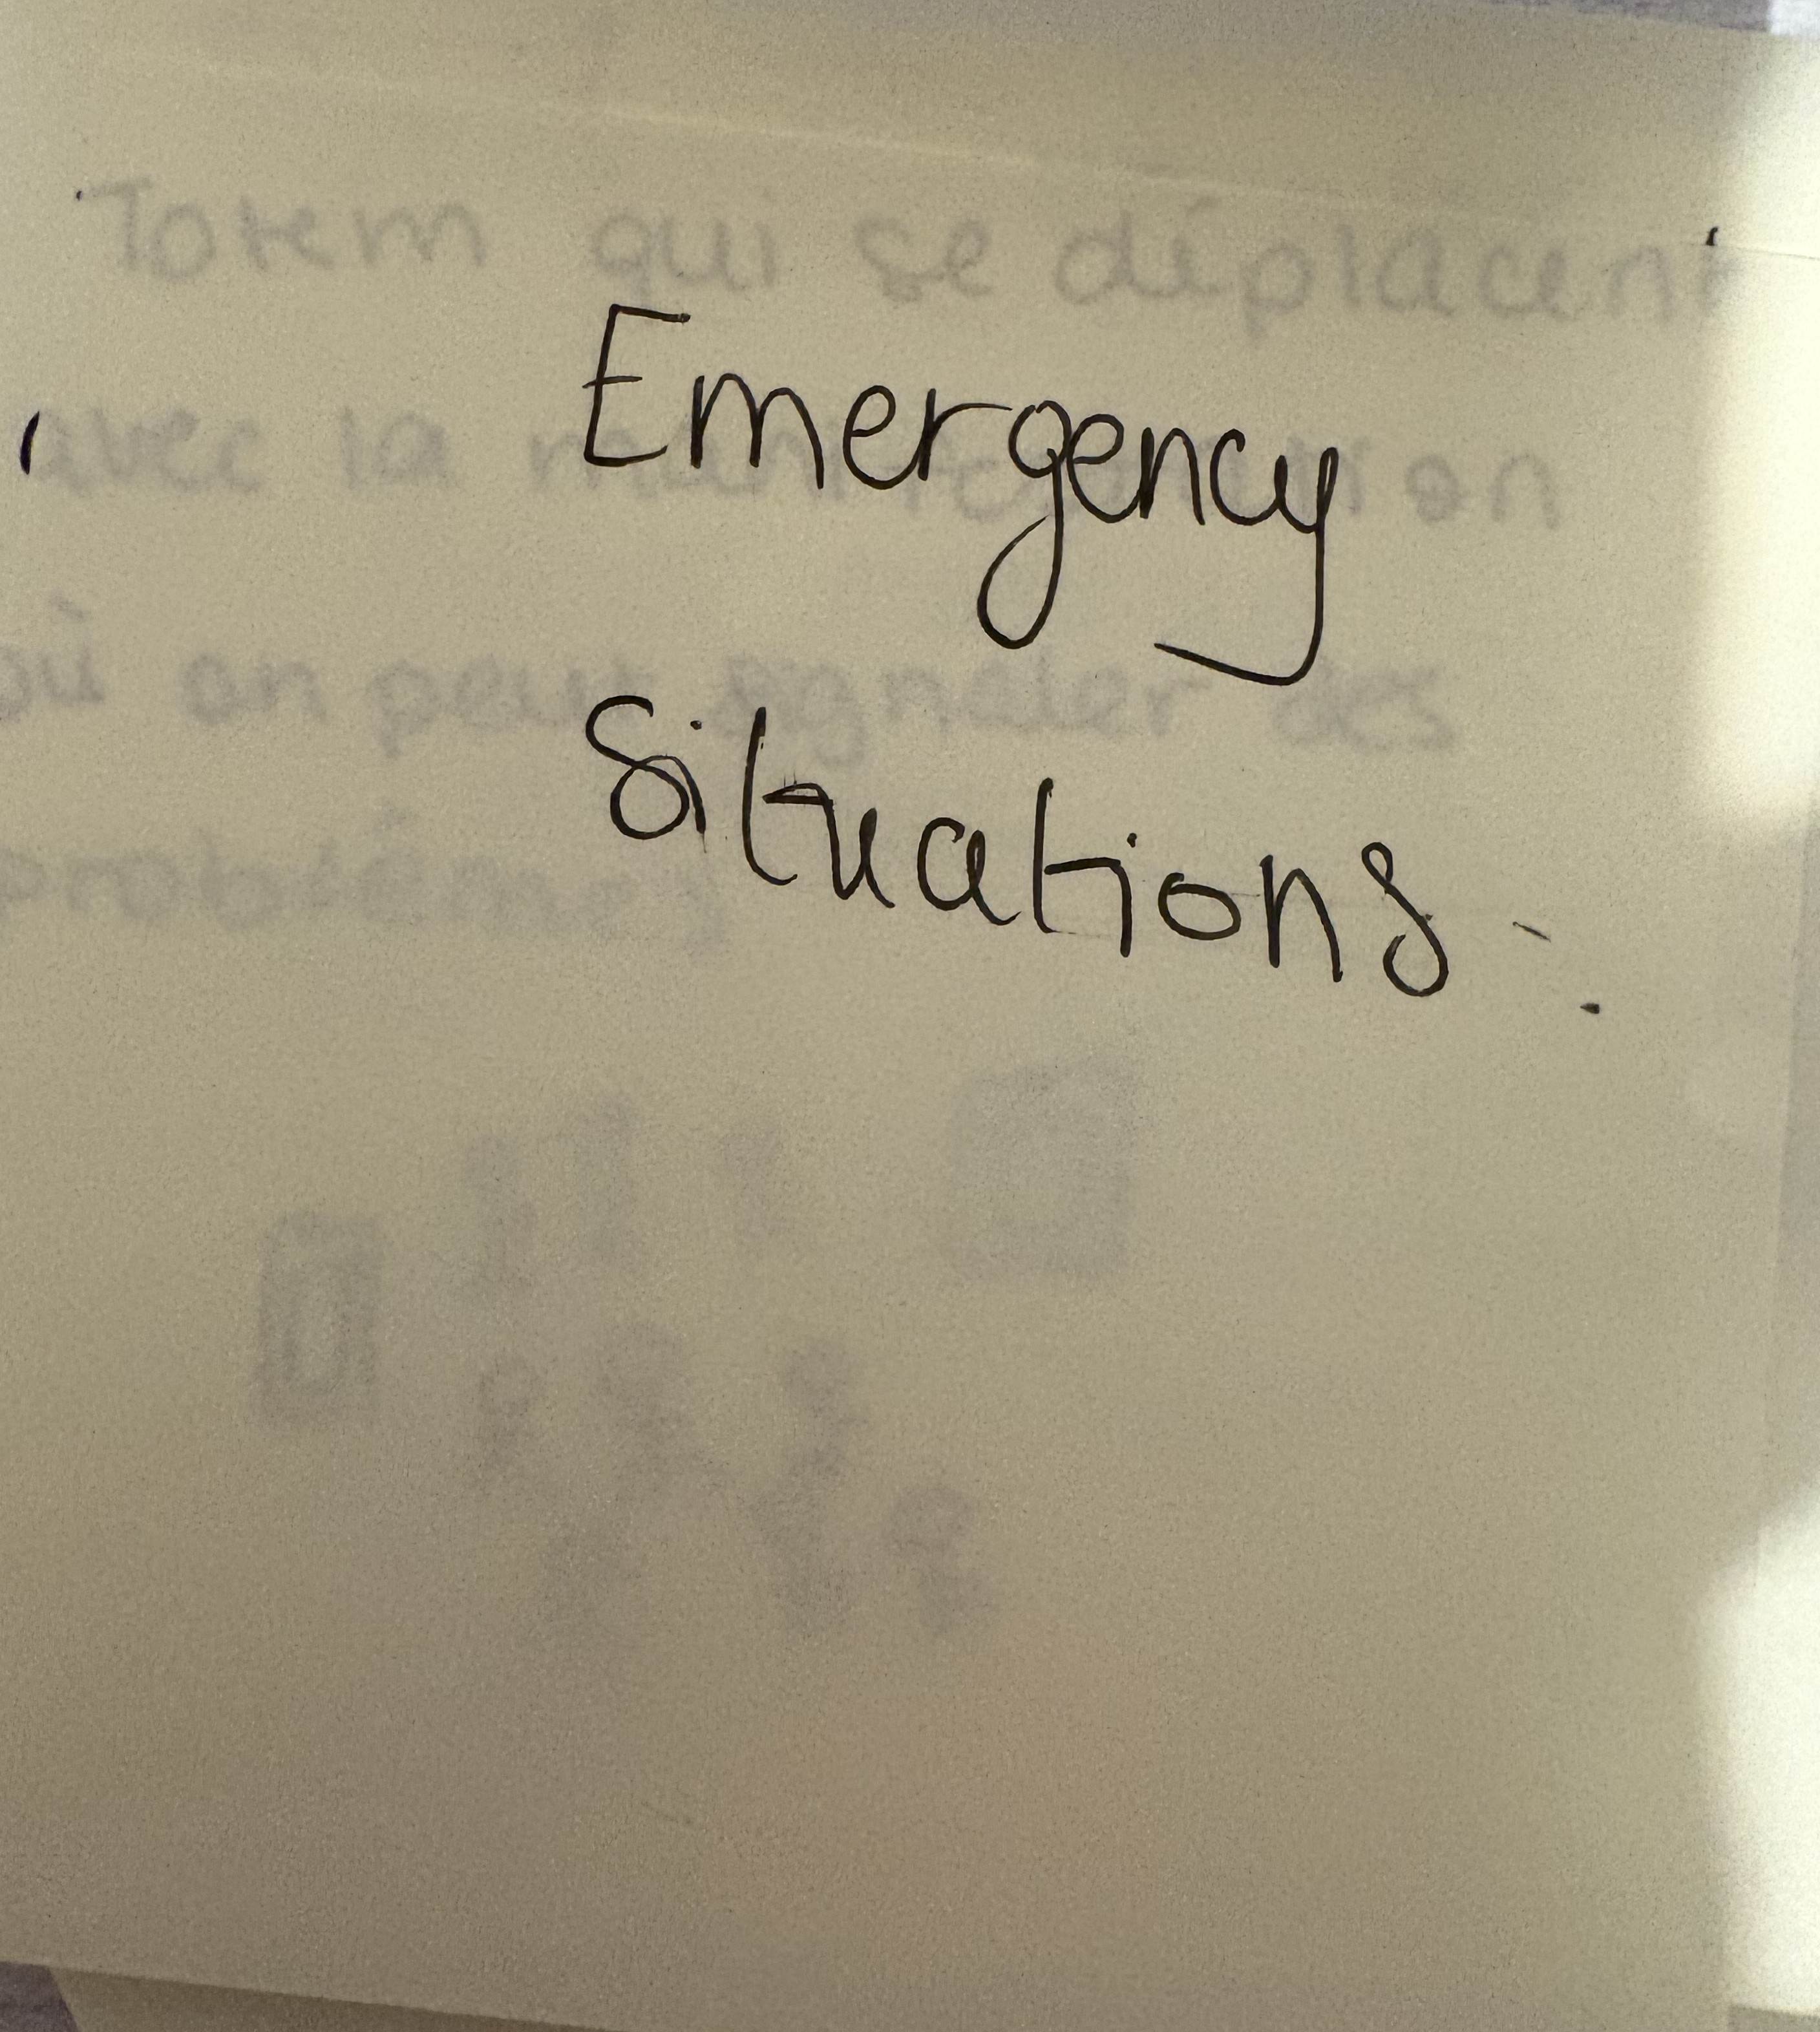 Totem qui se déplacent
Emergency
avec la manifestation
où on peut signaler des
Situations
problèmes